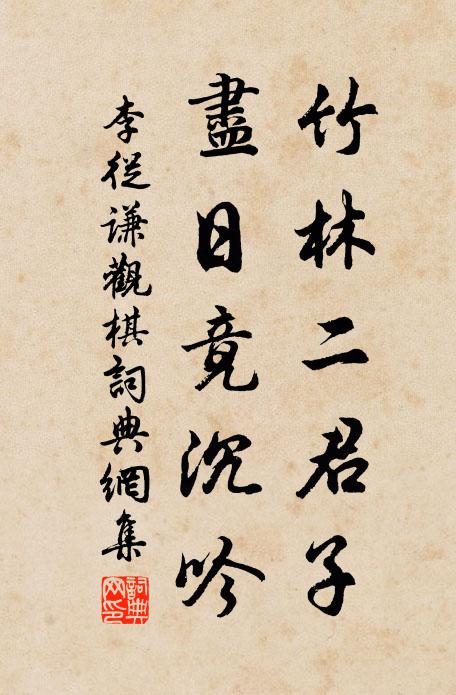 竹林二君子
盡日竟沉吟
李從谦觀棋詞典網集
詞典
网印